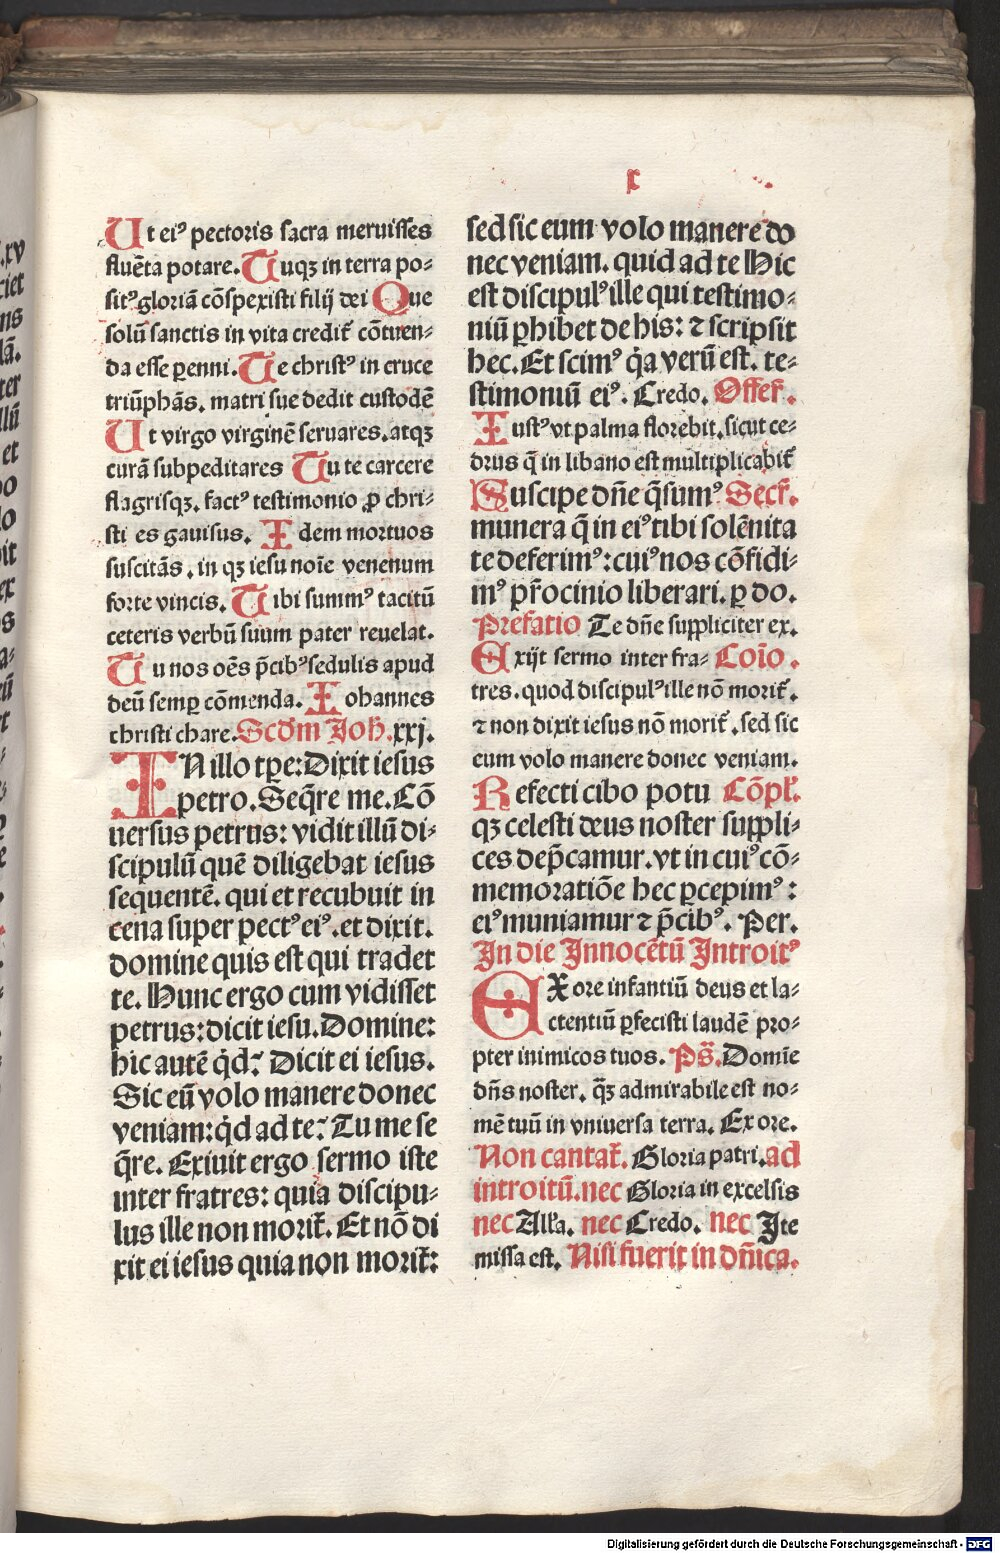 x
Ut eiꝰ pectoris sacra meruisses
fluēta potare. Tuqꝫ in terra po-
sitꝰ gloriā cōspexisti filij dei Que
solū sanctis in vita credit᷑ cōtuen-
da esse ꝑenni. Te christꝰ in cruce
triūphās. matri sue dedit custodē
Ut virgo virginē seruares. atqꝫ
curā subpeditares Tu te carcere
flagrisqꝫ. factꝰ testimonio ꝓ chri-
sti es gauisus. Idem mortuos
suscitās. in qꝫ iesu noīe venenum
forte vincis. Tibi summꝰ tacitū
ceteris verbū suum pater reuelat.
Tu nos oēs p̄cibꝰ sedulis apud
deū semꝑ cōmenda. Iohannes
christi chare. Scd̄m Joh. xxj.
IN illo tꝑe: Dixit iesus
petro. Seq̄re me. Cō
uersus petrus: vidit illū di-
scipulū quē diligebat iesus
sequentē. qui et recubuit in
cena super pectꝰ eiꝰ. et dixit.
domine quis est qui tradet
te. Hunc ergo cum vidisset
petrus: dicit iesu. Domine:
hic autē q̇d: Dicit ei iesus.
Sic eū volo manere donec
veniam: q̇d ad te: Tu me se
q̄re. Exiuit ergo sermo iste
inter fratres: quia discipu-
lus ille non morit᷑. Et nō di
xit ei iesus quia non morit᷑:
sed sic eum volo manere do
nec veniam. quid ad te Hic
est discipulꝰ ille qui testimo-
niū ꝑhibet de his: ⁊ scripsit
hec. Et scimꝰ q̇a verū est. te-
stimoniū eiꝰ. Credo. Offer᷑.
Iustꝰ vt palma florebit. sicut ce-
drus q̄ in libano est multiplicabit᷑
Suscipe dn̄e q̄sumꝰ Secr᷑.
munera q̄ in eiꝰ tibi solēnita
te deferimꝰ: cuiꝰ nos cōfidi-
mꝰ pr̄ocinio liberari. ꝑ do.
Prefatio Te dn̄e suppliciter ex.
Exijt sermo inter fra- Coīo.
tres. quod discipulꝰ ille nō morit᷑.
⁊ non dixit iesus nō morit᷑. sed sic
eum volo manere donec veniam.
Refecti cibo potu Cōpl᷑.
qꝫ celesti deus noster suppli-
ces dep̄camur. vt in cuiꝰ cō-
memoratiōe hec ꝑcepimꝰ:
eiꝰ muniamur ⁊ p̄cibꝰ. Per.
In die Innocētū Introitꝰ
EX ore infantiū deus et la-
ctentiū ꝑfecisti laudē pro-
pter inimicos tuos. Ps̄. Domīe
dn̄s noster. q̄ꝫ admirabile est no-
mē tuū in vniuersa terra. Ex ore.
Non cantat᷑. Gloria patri. ad
introitū. nec Gloria in excelsis
nec All̄a. nec Credo. nec Ite
missa est. Nisi fuerit in dn̄ica.
Digitalisierung gefördert durch die Deutsche Forschungsgemeinschaft - DFG